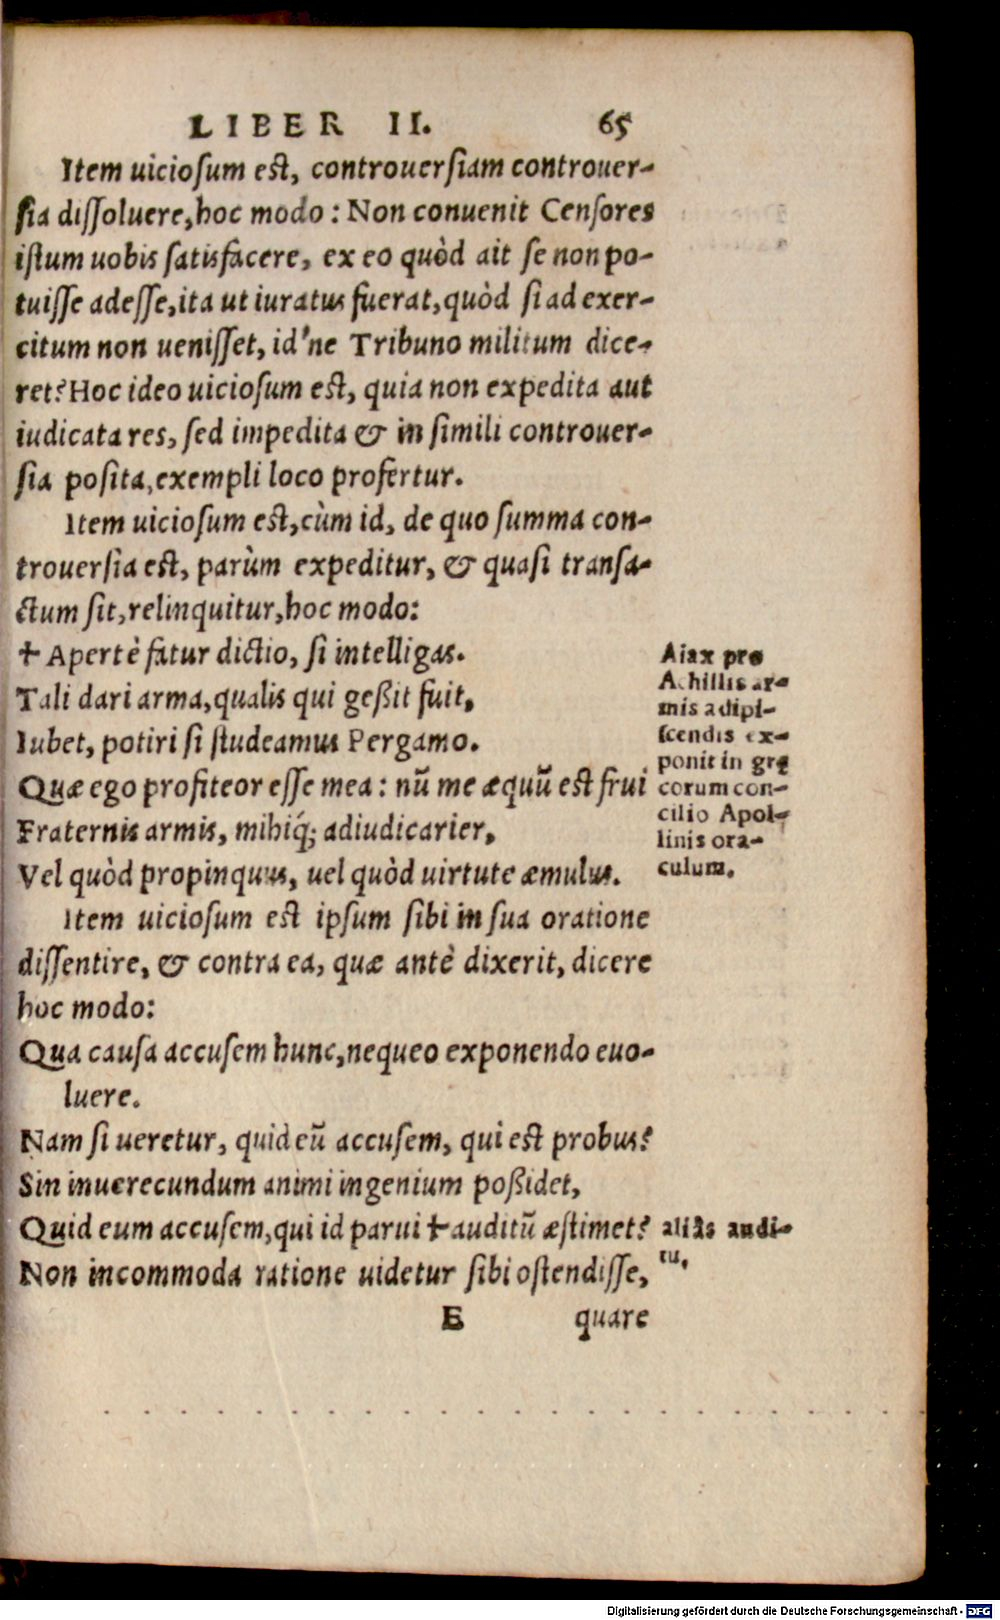 LIBER II. 65
Item uiciosum est, controuersiam controuer-
sia dissoluere, hoc modo: Non conuenit Censores
istum uobis satisfacere, ex eo quòd ait se non po-
tuisse adesse, ita ut iuratus fuerat, quòd si ad exer-
citum non uenisset, id'ne Tribuno militum dice-
ret? Hoc ideo uiciosum est, quia non expedita aut
iudicata res, sed impedita & in simili controuer-
sia posita, exempli loco profertur.
Item uiciosum est, cùm id, de quo summa con-
trouersia est, parùm expeditur, & quasi transa-
ctum sit, relinquitur, hoc modo:
✝ Apertè fatur dictio, si intelligas.
Tali dari arma, qualis qui geßit fuit,
Iubet, potiri si studeamus Pergamo.
Quæ ego profiteor esse mea: nū me æquū est frui
Fraternis armis, mihiq́; adiudicarier,
Vel quòd propinquus, uel quòd uirtute æmulus.
Aiax pro
Achillis ar-
mis adipi-
scendis ex-
ponit in grę
corum con-
cilio Apol-
linis ora-
culum.
Item uiciosum est ipsum sibi in sua oratione
dissentire, & contra ea, quæ antè dixerit, dicere
hoc modo:
Qua causa accusem hunc, nequeo exponendo euo-
luere.
Nam si ueretur, quid eū accusem, qui est probus?
Sin inuerecundum animi ingenium poßidet,
Quid eum accusem, qui id parui ✝ auditū æstimet?
aliâs audi-
tu.
Non incommoda ratione uidetur sibi ostendisse,
E quare
Digitalisierung gefördert durch die Deutsche Forschungsgemeinschaft - DFG